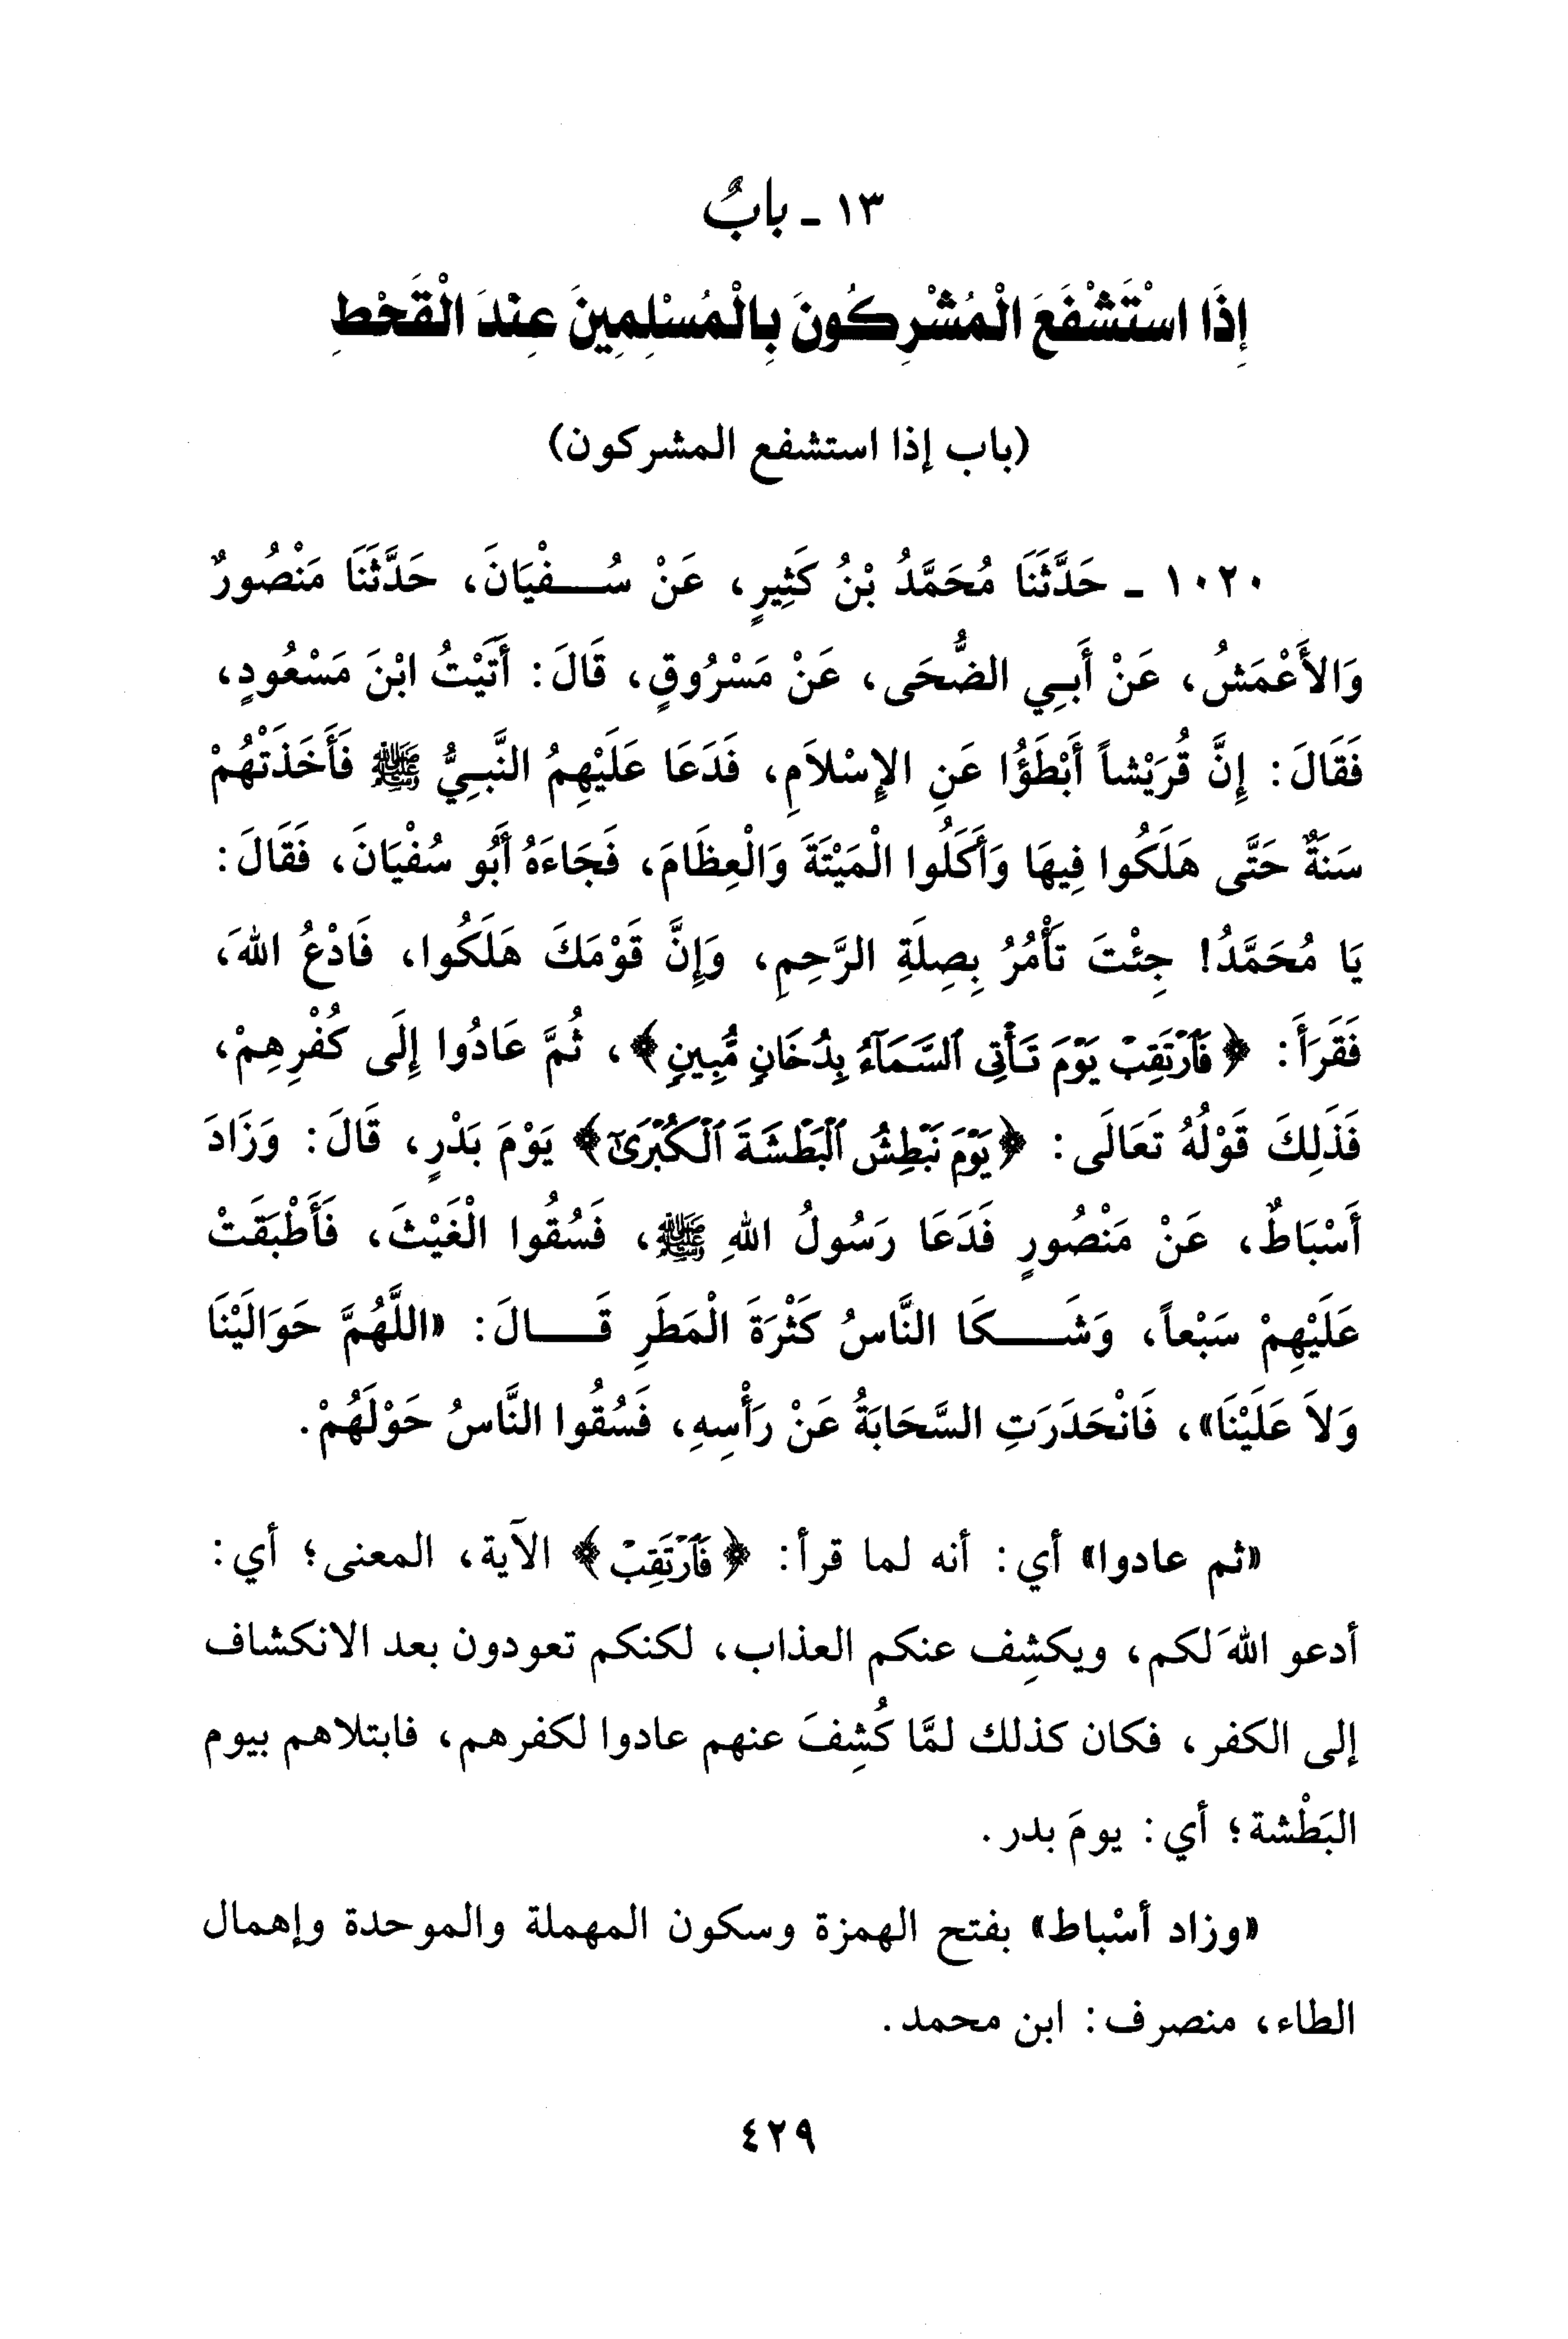 ١٣ - بابٌ
إِذَا اسْتَشْفَعَ الْمُشْرِكُونَ بِالْمُسْلِمِينَ عِنْدَ الْقَحْطِ
(باب إذا استشفع المشركون)
١٠٢٠ - حَدَّثَنَا مُحَمَّدُ بْنُ كَثِيرٍ، عَنْ سُفْيَانَ، حَدَّثَنَا مَنْصُورٌ
وَالأَعْمَشُ، عَنْ أَبِي الضُّحَى، عَنْ مَسْرُوقٍ، قَالَ: أَتَيْتُ ابْنَ مَسْعُودٍ،
فَقَالَ: إِنَّ قُرَيْشاً أَبْطَؤُا عَنِ الإِسْلاَمِ، فَدَعَا عَلَيْهِمُ النَّبِيُّ ﷺ فَأَخَذَتْهُمْ
سَنَةٌ حَتَّى هَلَكُوا فِيهَا وَأَكَلُوا الْمَيْتَةَ وَالْعِظَامَ، فَجَاءَهُ أَبُو سُفْيَانَ، فَقَالَ:
يَا مُحَمَّدُ! جِئْتَ تَأْمُرُ بِصِلَةِ الرَّحِمِ، وَإِنَّ قَوْمَكَ هَلَكُوا، فَادْعُ اللهَ،
فَقَرَأَ: ﴿فَٱرْتَقِبْ يَوْمَ تَأْتِى ٱلسَّمَآءُ بِدُخَانٍ مُّبِينٍ﴾، ثُمَّ عَادُوا إِلَى كُفْرِهِمْ،
فَذَلِكَ قَوْلُهُ تَعَالَى: ﴿يَوْمَ نَبْطِشُ ٱلْبَطْشَةَ ٱلْكُبْرَىٰٓ﴾ يَوْمَ بَدْرٍ، قَالَ: وَزَادَ
أَسْبَاطٌ، عَنْ مَنْصُورٍ فَدَعَا رَسُولُ اللهِ ﷺ، فَسُقُوا الْغَيْثَ، فَأَطْبَقَتْ
عَلَيْهِمْ سَبْعاً، وَشَكَا النَّاسُ كَثْرَةَ الْمَطَرِ قَالَ: «اللَّهُمَّ حَوَالَيْنَا
وَلاَ عَلَيْنَا»، فَانْحَدَرَتِ السَّحَابَةُ عَنْ رَأْسِهِ، فَسُقُوا النَّاسُ حَوْلَهُمْ.
«ثم عادوا» أي: أنه لما قرأ: ﴿فَٱرْتَقِبْ﴾ الآية، المعنى؛ أي:
أدعو اللهَ لكم، ويكشِف عنكم العذاب، لكنكم تعودون بعد الانكشاف
إلى الكفر، فكان كذلك لمَّا كُشِفَ عنهم عادوا لكفرهم، فابتلاهم بيوم
البَطْشة؛ أي: يومَ بدر.
«وزاد أسْباط» بفتح الهمزة وسكون المهملة والموحدة وإهمال
الطاء، منصرف: ابن محمد.
٤٢٩